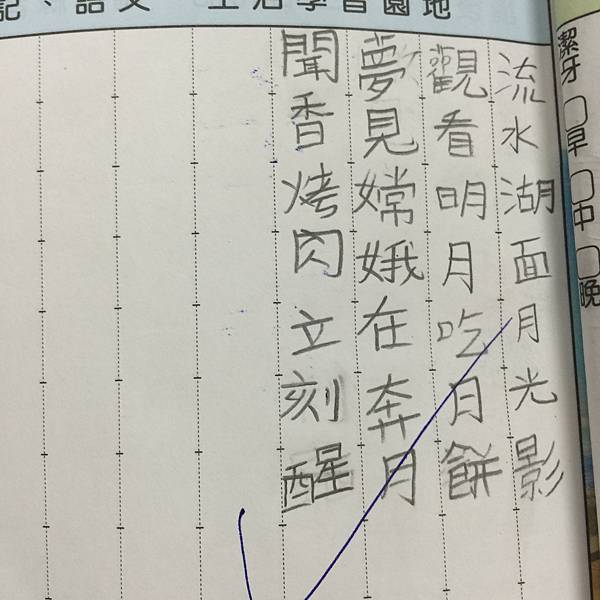 記、語文 生活學習園地
流水湖面月光影
觀看明月吃月餅
夢見嫦娥在奔月
聞香烤肉立刻醒
潔牙
早
中
晚